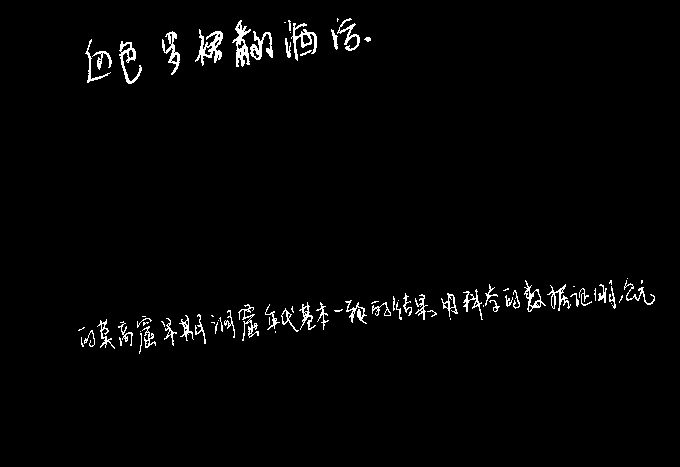 血色罗裙翻酒污.
的莫高窟早期洞窟年代基本一致的结果,用科学的数据证明,公元